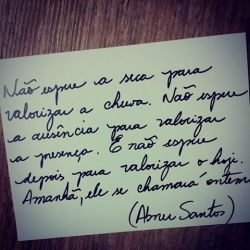 Não espere a seca para
valorizar a chuva. Não espere
a ausência para valorizar
a presença. E não espere
depois para valorizar o hoje.
Amanhã, ele se chamará ontem
(Abneu Santos)